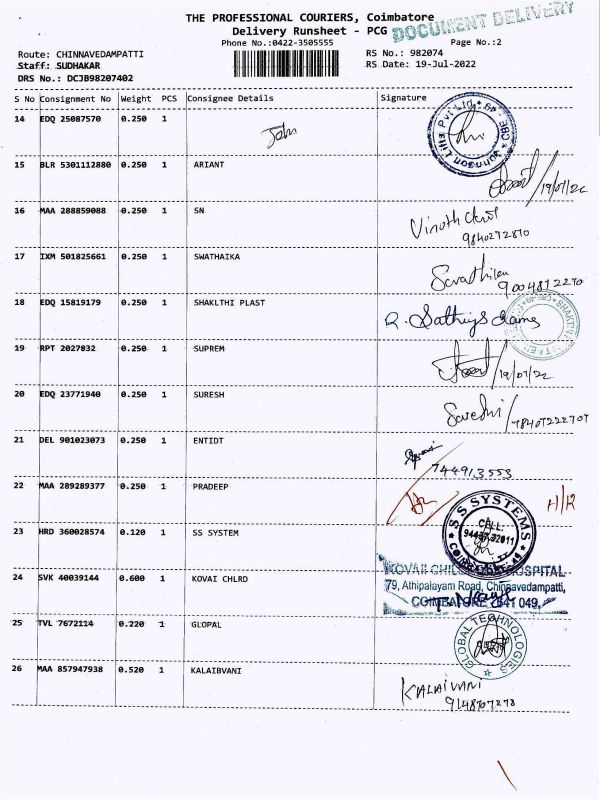 THE PROFESSIONAL COURIERS, Coimbatore
DOCUMENT DELIVERY
Delivery Runsheet - PCG
Phone No.:0422-3505555 Page No.:2
Route: CHINNAVEDAMPATTI RS No.: 982074
Staff: SUDHAKAR RS Date: 19-Jul-2022
DRS No.: DCJB98207402
S No Consignment No Weight PCS Consignee Details Signature
14 EDQ 25087570 0.250 1
John
Johnson Lifts Pvt Ltd CBE-49
15 BLR 5301112880 0.250 1 ARIANT
19/07/22
16 MAA 288859088 0.250 1 SN
Vinoth
9840272810
17 IXM 501825661 0.250 1 SWATHAIKA
18 EDQ 15819179 0.250 1 SHAKLTHI PLAST
19 RPT 2027832 0.250 1 SUPREM
19/07/22
20 EDQ 23771940 0.250 1 SURESH
21 DEL 901023073 0.250 1 ENTIDT
744913553
22 MAA 289289377 0.250 1 PRADEEP
H/R
23 HRD 360028574 0.120 1 SS SYSTEM
S S SYSTEMS
CELL:
24 SVK 40039144 0.600 1 KOVAI CHLRD
KOVAI CHILDREN HOSPITAL
79, Athipalayam Road, Chinnavedampatti,
COIMBATORE - 641 049.
25 TVL 7672114 0.220 1 GLOPAL
GLOBAL TECHNOLOGIES
26 MAA 857947938 0.520 1 KALAIBVANI
KALAIVANI